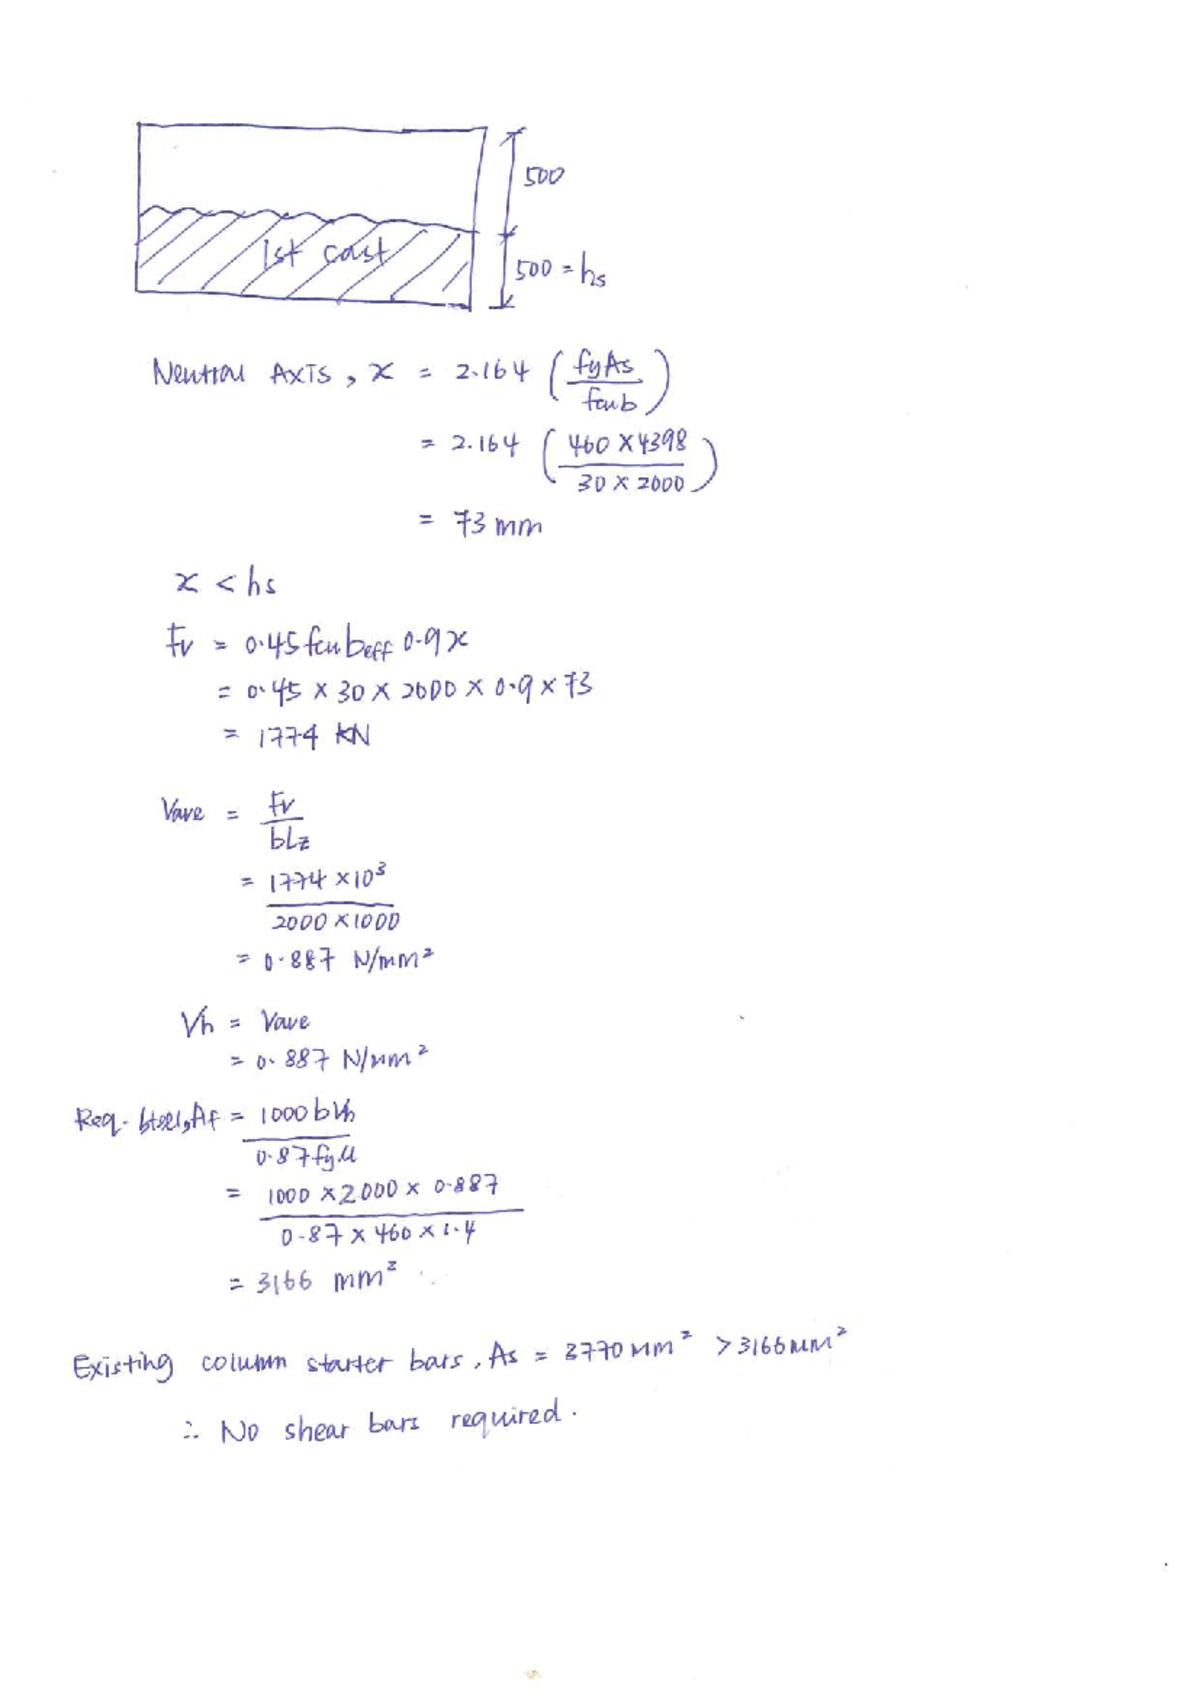 500
1st cast
500 = hs
Neutral Axis, x = 2.164 (fyAs / fcub)
= 2.164 (460 × 4398 / 30 × 2000)
= 73 mm
x < hs
Fv = 0.45 fcu beff 0.9x
= 0.45 × 30 × 2000 × 0.9 × 73
= 1774 KN
Vave = Fv / bLz
= 1774 × 10³ / 2000 × 1000
= 0.887 N/mm²
Vh = Vave
= 0.887 N/mm²
Req. steel, Af = 1000 b Vh / 0.87 fy μ
= 1000 × 2000 × 0.887 / 0.87 × 460 × 1.4
= 3166 mm²
Existing column starter bars, As = 3770 mm² > 3166 mm²
∴ No shear bars required.